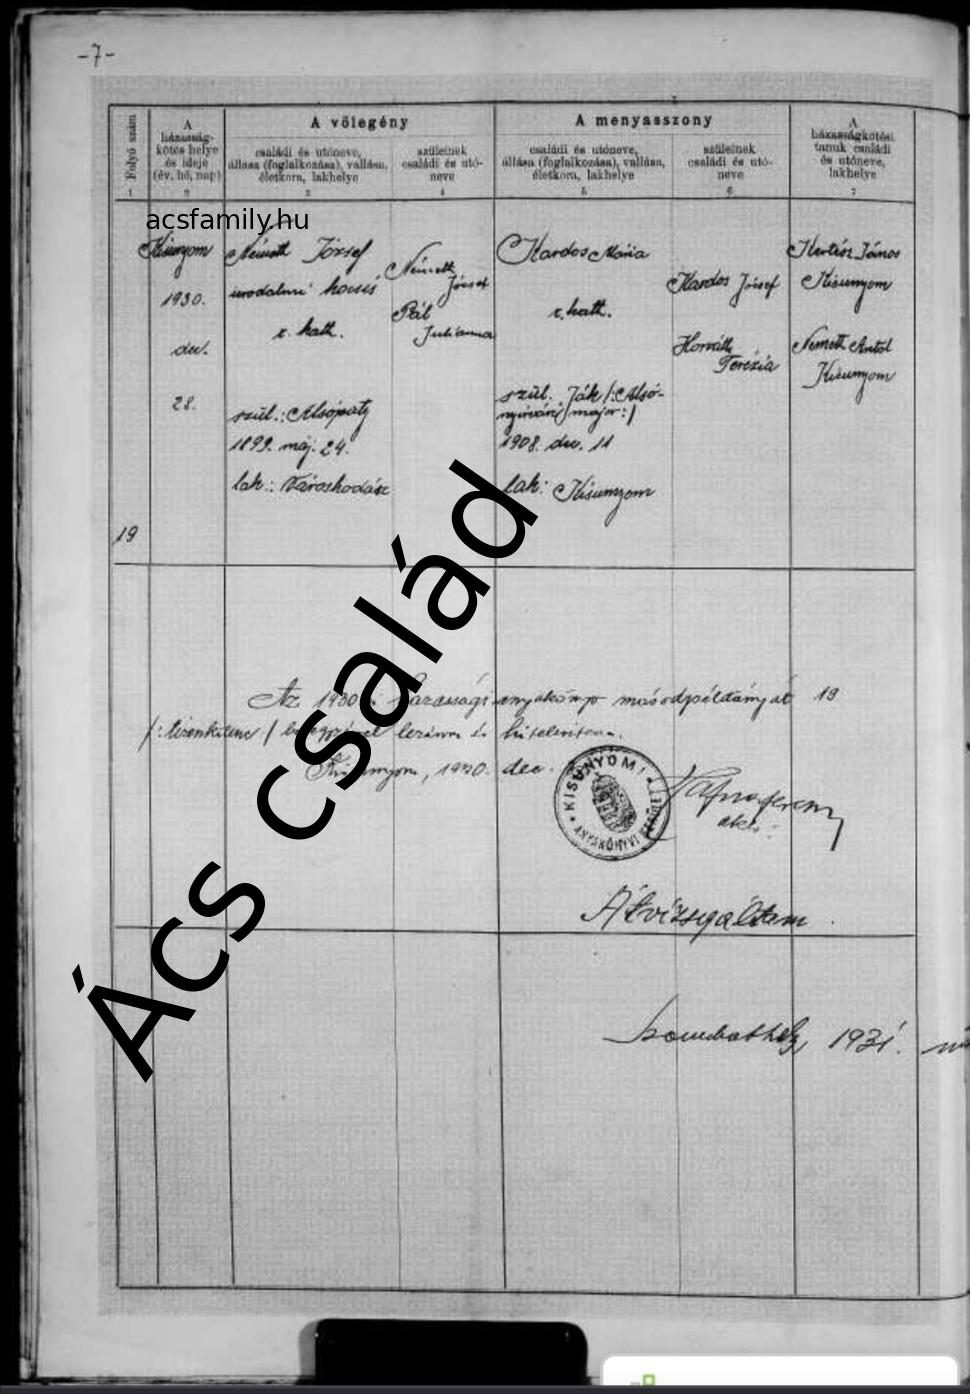 -7-
Folyó szám
A házasság-
kötés helye
és ideje
(év, hó, nap)
A vőlegény
családi és utóneve,
állása (foglalkozása), vallása,
életkora, lakhelye
szüleinek
családi és utó-
neve
A menyasszony
családi és utóneve,
állása (foglalkozása), vallása,
életkora, lakhelye
szüleinek
családi és utó-
neve
A
házasságkötési
tanuk családi
és utóneve,
lakhelye
1 2 3 4 5 6 7
acsfamily.hu
19
Kisunyom
1930.
dec.
28.
Németh József
uradalmi kocsis
r. kath.
szül.: Alsópaty
1899. máj. 24.
lak.: Városhodász
Németh
József
Pál
Julianna
Kardos Mária
r. kath.
szül. Ják /: Alsó-
major :/
1908. dec. 11
lak: Kisunyom
Kardos József
Horváth
Terézia
Kertész János
Kisunyom
Németh Antal
Kisunyom
Az 1930 házassági anyakönyv másodpéldányát 19
/: tizenkilenc / lezárom és hitelesítem.
Kisunyom, 1930. dec.
KISUNYOMI
ANYAKÖNYVI KERÜLET
Átvizsgáltam
Szombathely 1931.
Ács család